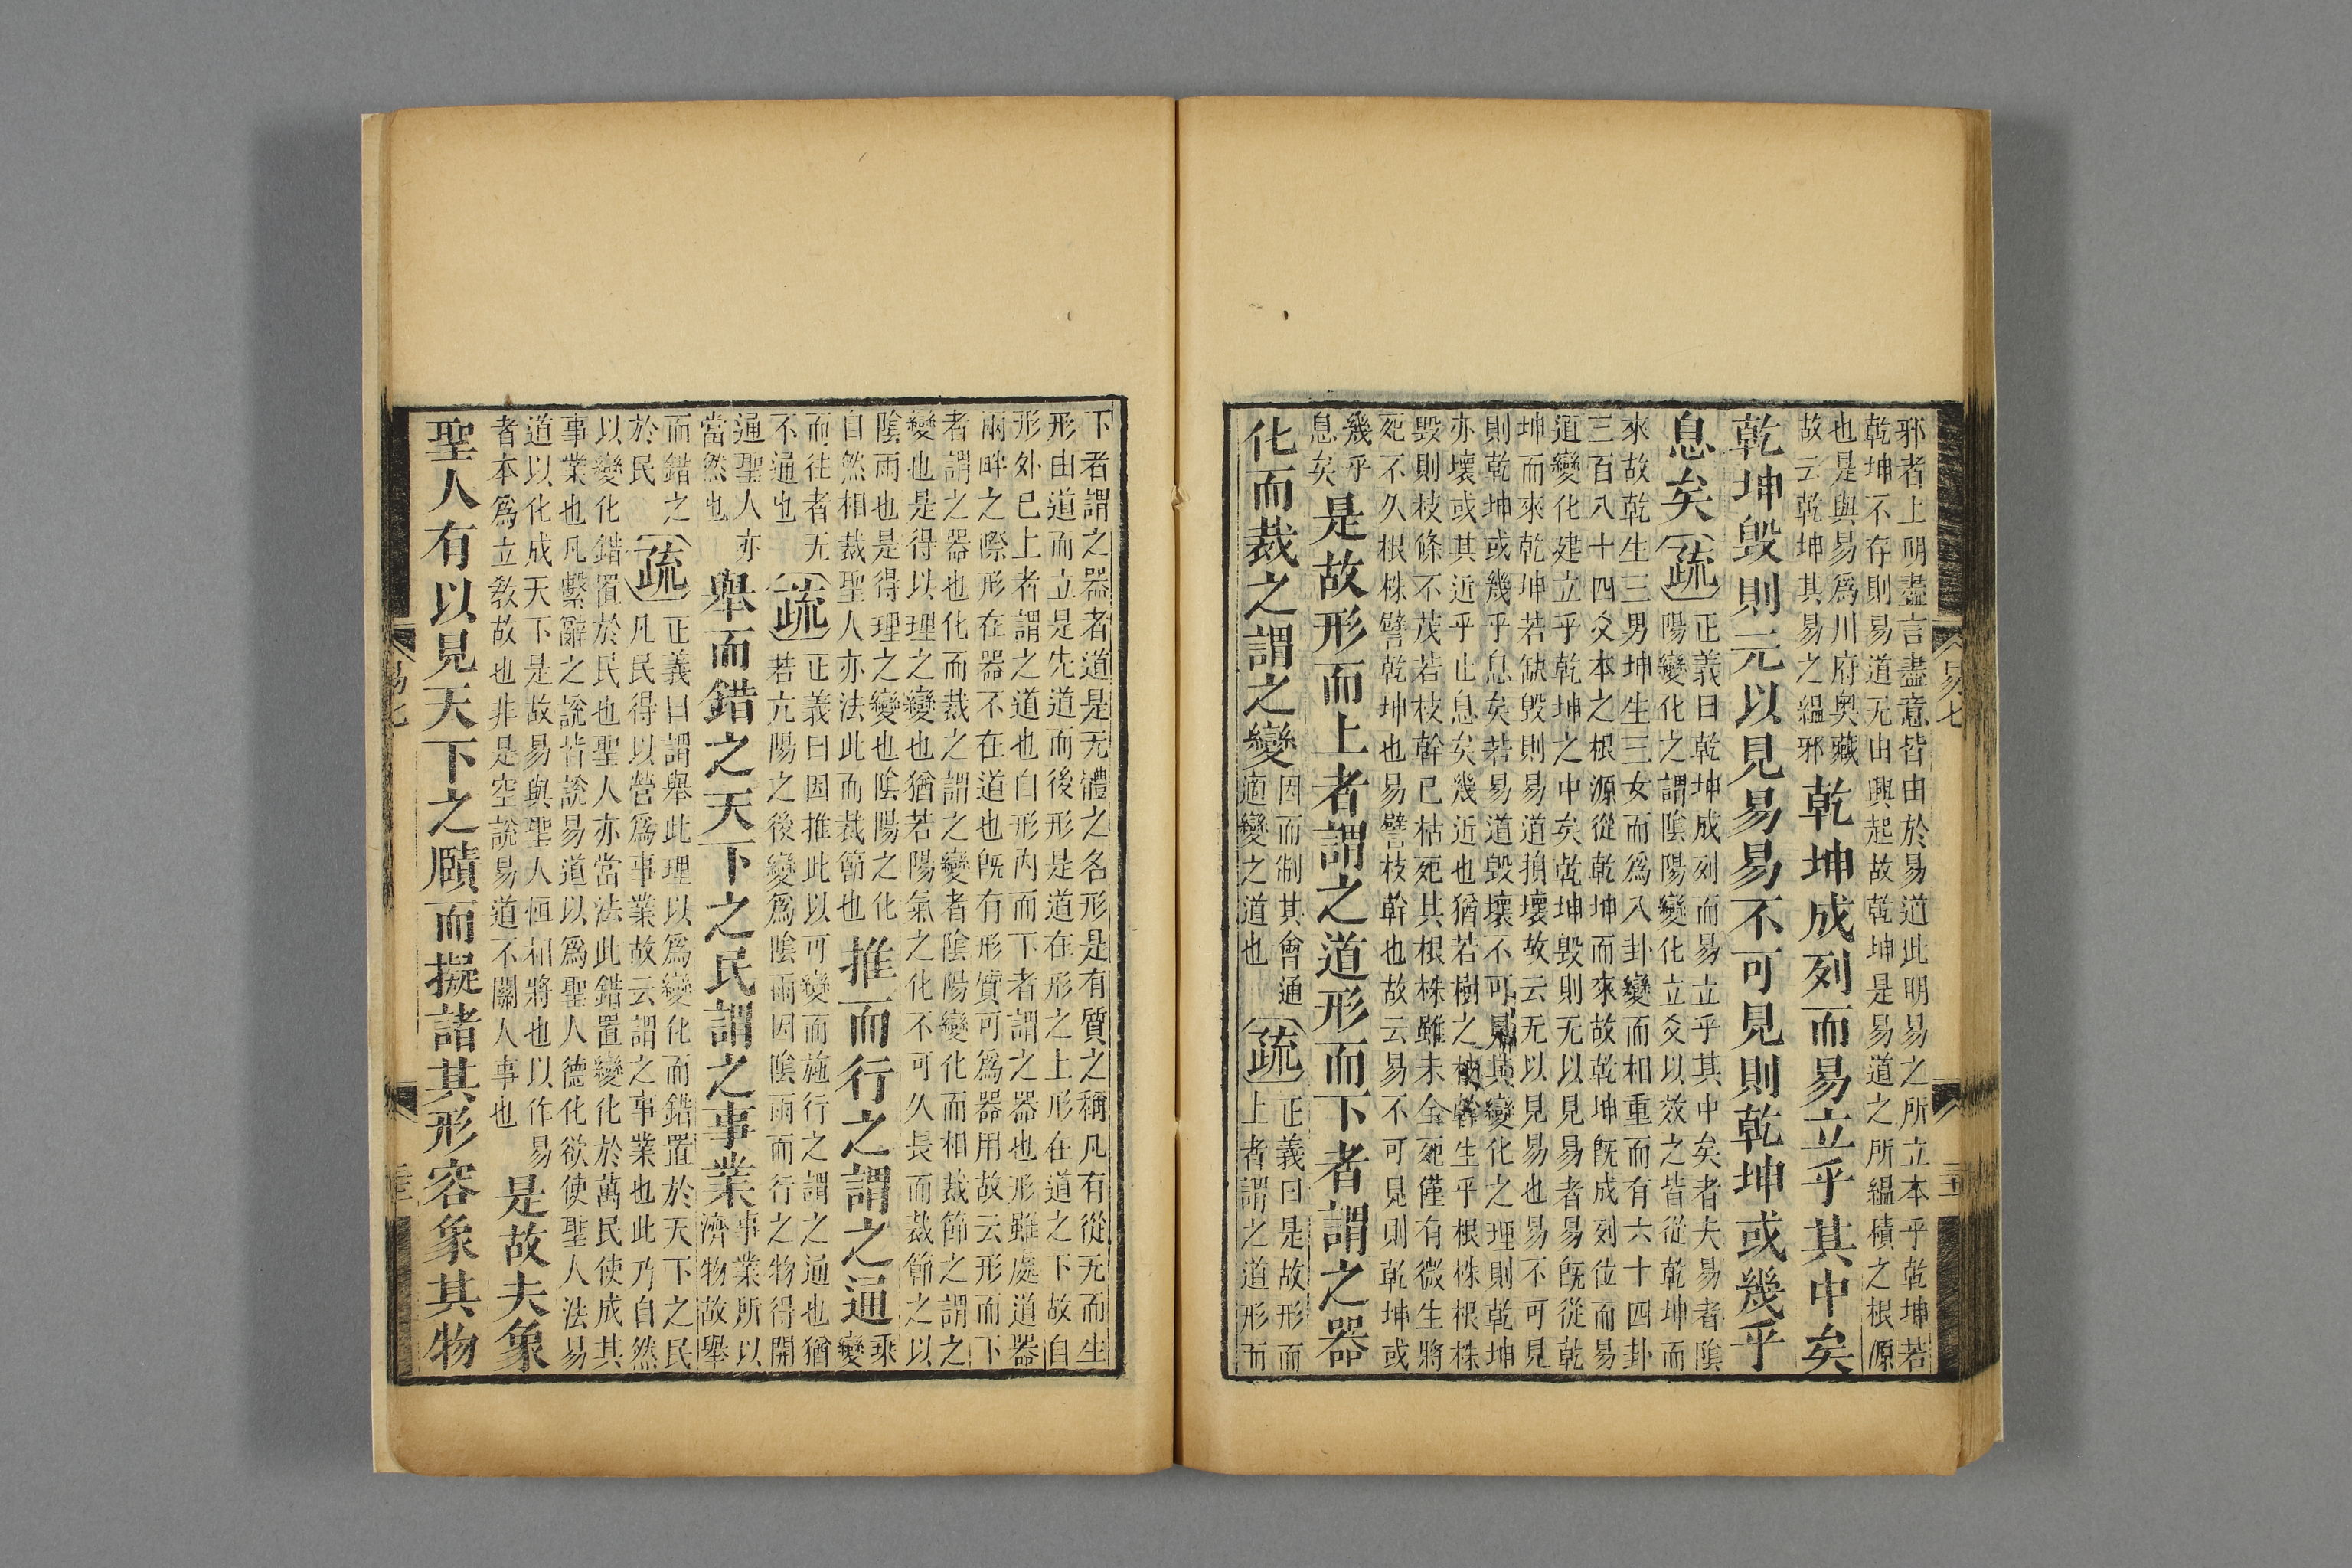 邪者上明盡言盡意皆由於易道此明易之所立本乎乾坤若
乾坤不存則易道无由興起故乾坤是易道之所縕積之根源
也是與易爲川府奧藏
故云乾坤其易之縕邪
乾坤成列而易立乎其中矣
乾坤毀則元以見易易不可見則乾坤或幾乎
息矣疏
正義曰乾坤成列而易立乎其中矣者夫易者陰
陽變化之謂陰陽變化立爻以效之皆從乾坤而
來故乾生三男坤生三女而爲八卦變而相重而有六十四卦
三百八十四爻本之根源從乾坤而來故乾坤旣成列位而易
道變化建立乎乾坤之中矣乾坤毀則无以見易者易旣從乾
坤而來乾坤若缺毀則易道損壞故云无以見易也易不可見
則乾坤或幾乎息矣若易道毀壞不可見其變化之理則乾坤
亦壞或其近乎止息矣幾近也猶若樹之枝幹生乎根株根株
毀則枝條不茂若枝幹已枯死其根株雖未全死僅有微生將
死不久根株譬乾坤也易譬枝幹也故云易不可見則乾坤或
幾乎
息矣
是故形而上者謂之道形而下者謂之器
化而裁之謂之變
因而制其會通
適變之道也
疏
正義曰是故形而
上者謂之道形而
易七
下者謂之器者道是无體之名形是有質之稱凡有從无而生
形由道而立是先道而後形是道在形之上形在道之下故自
形外已上者謂之道也自形內而下者謂之器也形雖處道器
兩畔之際形在器不在道也旣有形質可爲器用故云形而下
者謂之器也化而裁之謂之變者陰陽變化而相裁節之謂之
變也是得以理之變也猶若陽氣之化不可久長而裁節之以
陰雨也是得理之變也陰陽之化
自然相裁聖人亦法此而裁節也
推而行之謂之通
乘
變
而往者无
不通也
疏
正義曰因推此以可變而施行之謂之通也猶
若亢陽之後變爲陰雨因陰雨而行之物得開
通聖人亦
當然也
舉而錯之天下之民謂之事業
事業所以
濟物故舉
而錯之
於民
疏
正義曰謂舉此理以爲變化而錯置於天下之民
凡民得以營爲事業故云謂之事業也此乃自然
以變化錯置於民也聖人亦當法此錯置變化於萬民使成其
事業也凡繫辭之說皆說易道以爲聖人德化欲使聖人法易
道以化成天下是故易與聖人恒相將也以作易
者本爲立敎故也非是空說易道不關人事也
是故夫象
聖人有以見天下之賾而擬諸其形容象其物
易七